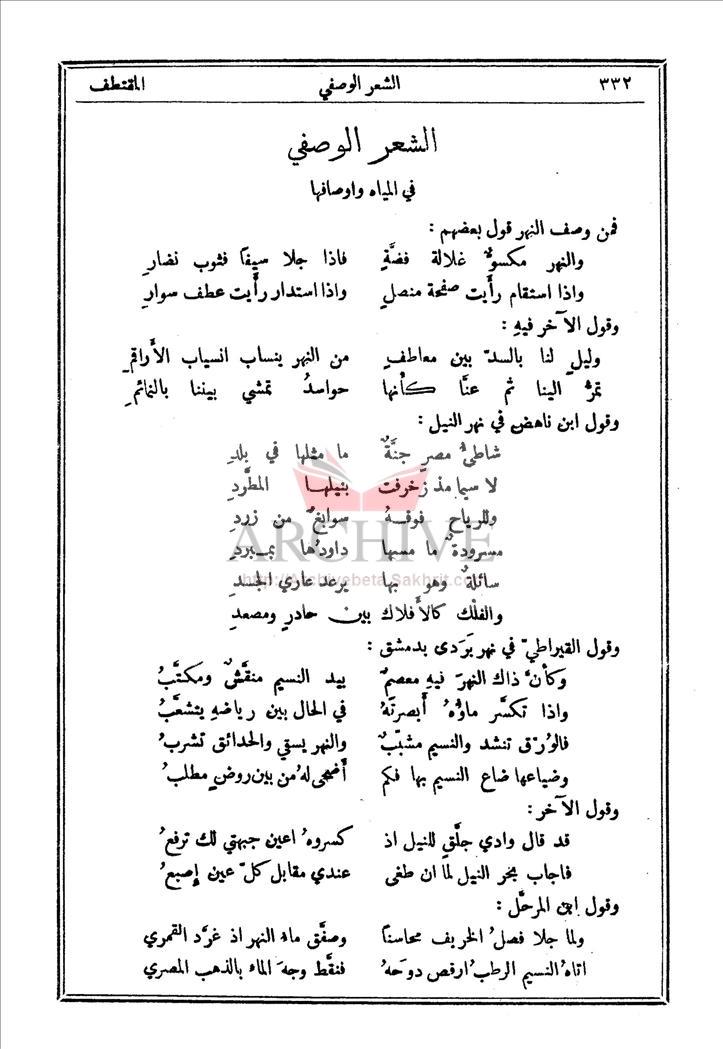 ٣٣٢ الشعر الوصفي المقتطف
الشعر الوصفي
في المياه واوصافها
فمن وصف النهر قول بعضهم :
والنهر مكسوٌّ غلالة فضَّةٍ فاذا جلا سيفاً فثوب نضارِ
واذا استقام رأَيت صفحة منصلٍ واذا استدار رأَيت عطف سوارِ
وقول الآخر فيهِ :
وليلٍ لنا بالسدّ بين معاطفٍ من النهر ينساب انسياب الأَراقمِ
تمرُّ الينا ثم عنَّا كأَنها حواسدُ تمشي بيننا بالنمائمِ
وقول ابن ناهض في نهر النيل :
شاطئُ مصرٍ جنَّةٌ ما مثلها في بلدِ
لا سيما مذ زخرفت بنيلها المطَّردِ
وللرياح فوقهُ سوابغٌ من زردِ
مسرودةٌ ما مسها داودُها بمبردِ
سائلةٌ وهو بها يرعد عاري الجسدِ
والفلك كالأَفلاك بين حادرٍ ومصعدِ
ARCHIVE
http://Archivebeta.Sakhrit.com
وقول القيراطيّ في نهر بَرَدى بدمشق :
وكأنَّ ذاك النهرَ فيهِ معصمٌ بيد النسيم منقَّشٌ ومكتَّبُ
واذا تكسَّر ماؤهُ أَبصرتَهُ في الحال بين رياضهِ يتشعَّبُ
فالوُرْق تنشد والنسيم مشبّبٌ والنهر يسقي والحدائق تشربُ
وضياعها ضاع النسيم بها فكم أَضحى لهُ من بين روضٍ مطلبُ
وقول الآخر :
قد قال وادي جلَّقٍ للنيل اذ كسروهُ اعين جبهتي لك ترفعُ
فاجاب بحر النيل لما ان طغى عندي مقابل كلّ عين إِصبعُ
وقول ابن المرحَّل :
ولما جلا فصلُ الخريف محاسناً وصفَّق ماءُ النهر اذ غرَّد القمري
اتاهُ النسيم الرطبُ ارقص دوحهُ فنقَّط وجهَ الماء بالذهب المصري